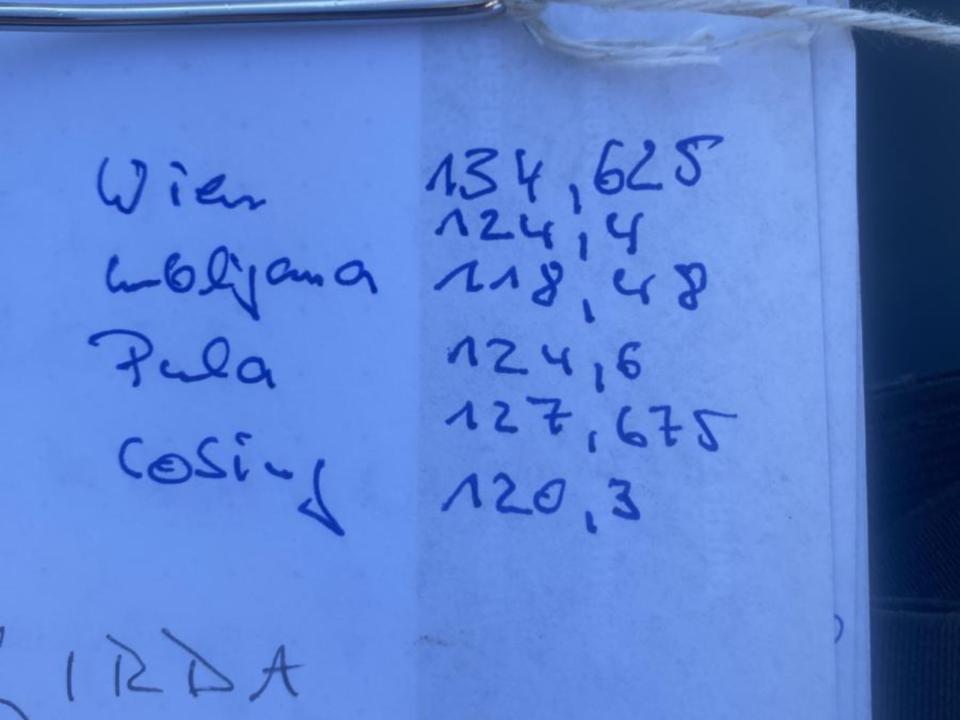 Wien 134,625
124,4
Lubljana 118,48
Pula 124,6
127,675
Losinj 120,3
IRDA